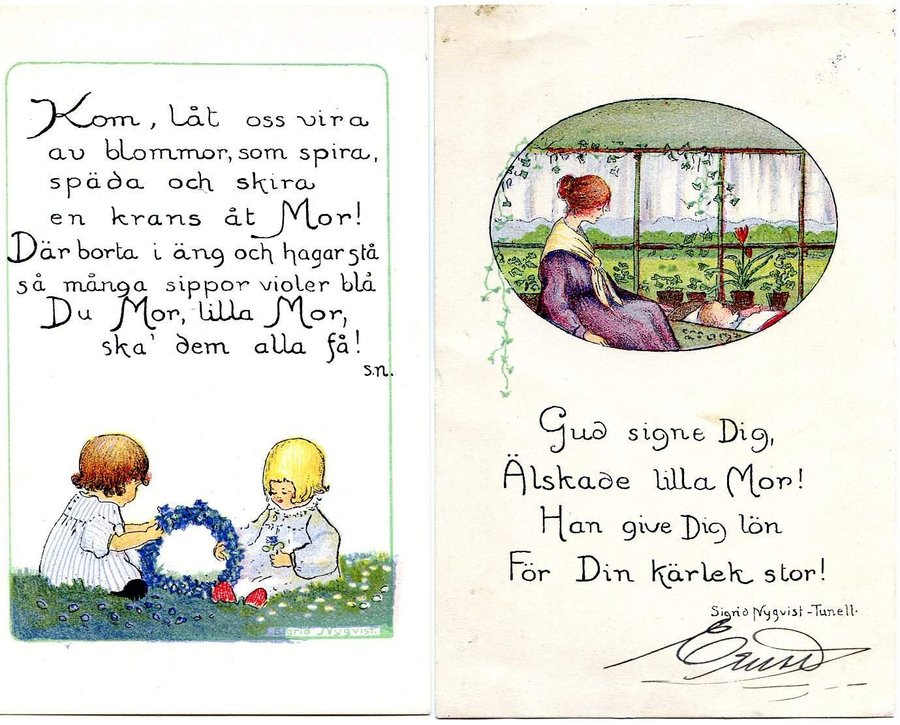 Kom, låt oss vira
av blommor, som spira,
späda och skira
en krans åt Mor!
Där borta i äng och hagar stå
så många sippor violer blå
Du Mor, lilla Mor,
ska' dem alla få!
s.n.
Sigrid Nyqvist.
Gud signe Dig,
Älskade lilla Mor!
Han give Dig lön
För Din kärlek stor!
Sigrid Nyqvist-Tunell.